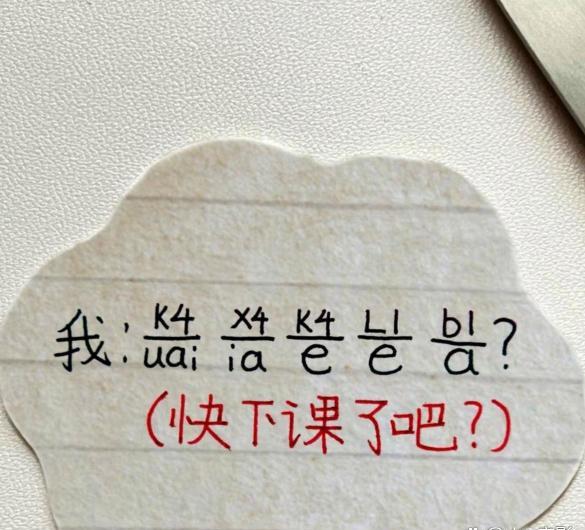 我: K4/uai X4/ia K4/e L1/e b1/a?
(快下课了吧?)